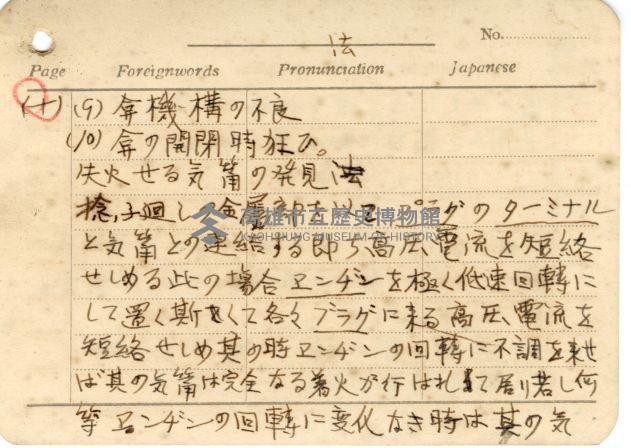 法
No.
Page Foreignwords Pronunciation Japanese
(十) (9) 弇機構の不良
(10) 弇の開閉時狂ひ。
失火せる気筩の発見法
捻子廻し金属 を以 プラグのターミナル
と気筩との連結する即ち高圧電流を短絡
せしめる此の場合ヱンヂンを極く低速回轉に
して置く斯くして各々プラグに来る高圧電流を
短絡せしめ其の時ヱンヂンの回轉に不調を来せ
ば其の気筩は完全なる着火が行はれて居り若し何
等ヱンヂンの回轉に変化なき時は其の気
高雄市立歷史博物館
KAOHSIUNG MUSEUM OF HISTORY